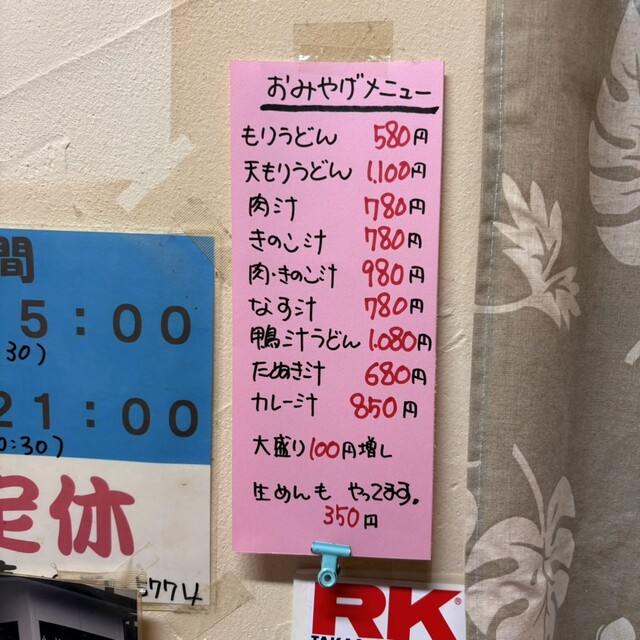 おみやげメニュー
もりうどん 580円
天もりうどん 1,100円
肉汁 780円
きのこ汁 780円
肉・きのこ汁 980円
なす汁 780円
鴨汁うどん 1,080円
たぬき汁 680円
カレー汁 850円
大盛り100円増し
生めんも やってます。
350円
間
5:00
:30)
21:00
0:30)
定休
5774
RK